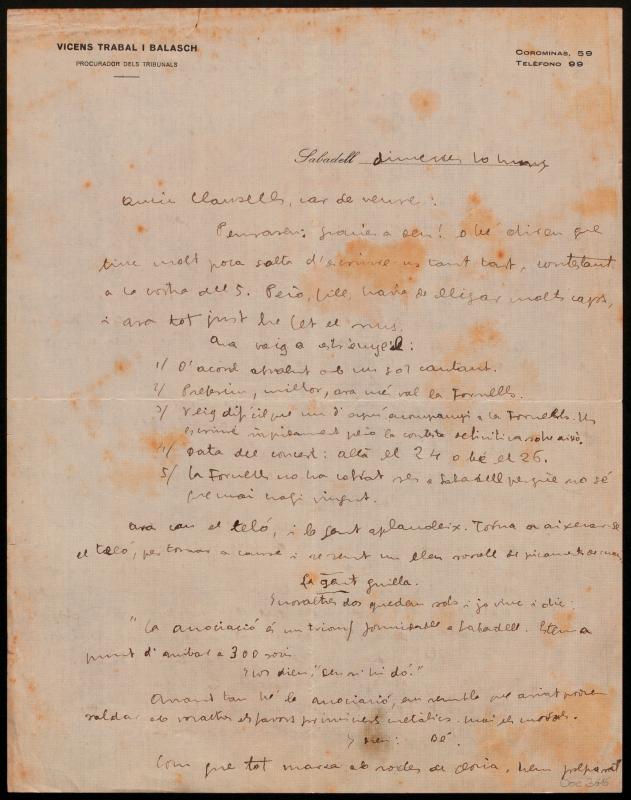 VICENS TRABAL I BALASCH
PROCURADOR DELS TRIBUNALS
COROMINAS, 59
TELÈFONO 99
Sabadell dimecres 10
Amic Clausells, car de veure:
Pensareu: gràcies a Deu! o bé direu que
tinc molt poca solta d'escriure-us tant tart, contestant
a la vostra del 5. Però, fill, havia de lligar molts caps,
i ara tot just he fet el nus.
Ara vaig a estrènye'l:
1/ D'acord absolut amb un sol cantant.
2/ Preferim, millor, ara més val la Fornells.
3/ Veig difícil que un d'aquí acompanyi a la Fornells. Us
escriuré ràpidament però la contesta definitiva sobre això.
4/ Data del concert: allà el 24 o bé el 26.
5/ La Fornells no ha cobrat res a Sabadell perquè no sé
que mai hagi vingut.
Ara cau el teló, i la gent aplaudeix. Torna a aixecar-se
el teló, per tornar a caure i se sent un lleu soroll de picaments de mans
La gent guilla.
Nosaltres dos quedem sols i jo vinc i dic:
"La associació és un triomf formidable a Sabadell. Estem a
punt d'arribar a 300 socis
Vos dieu; "Deu n'hi dó."
Anant tan bé la associació, em sembla que aviat podrem
saldar amb vosaltres els favors mai els morals.
I dieu: Bé.
Com que tot marxa amb rodes de, hem preparat
Doc 355